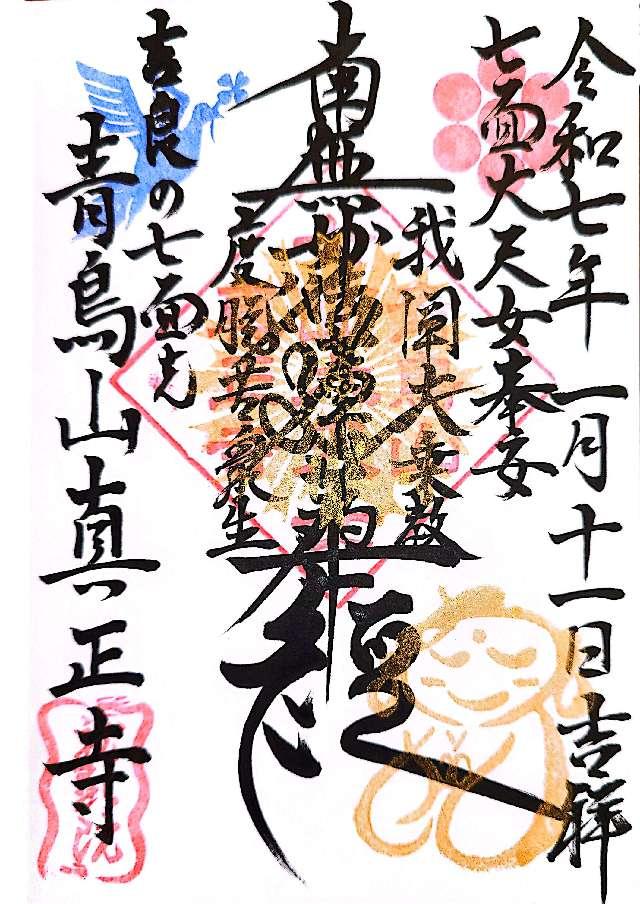 令和七年 一月十一日 吉祥
七面大天女奉安
我闡大乗教
南無妙法蓮華経
度脱苦衆生
吉良の七面さん
青鳥山真正寺